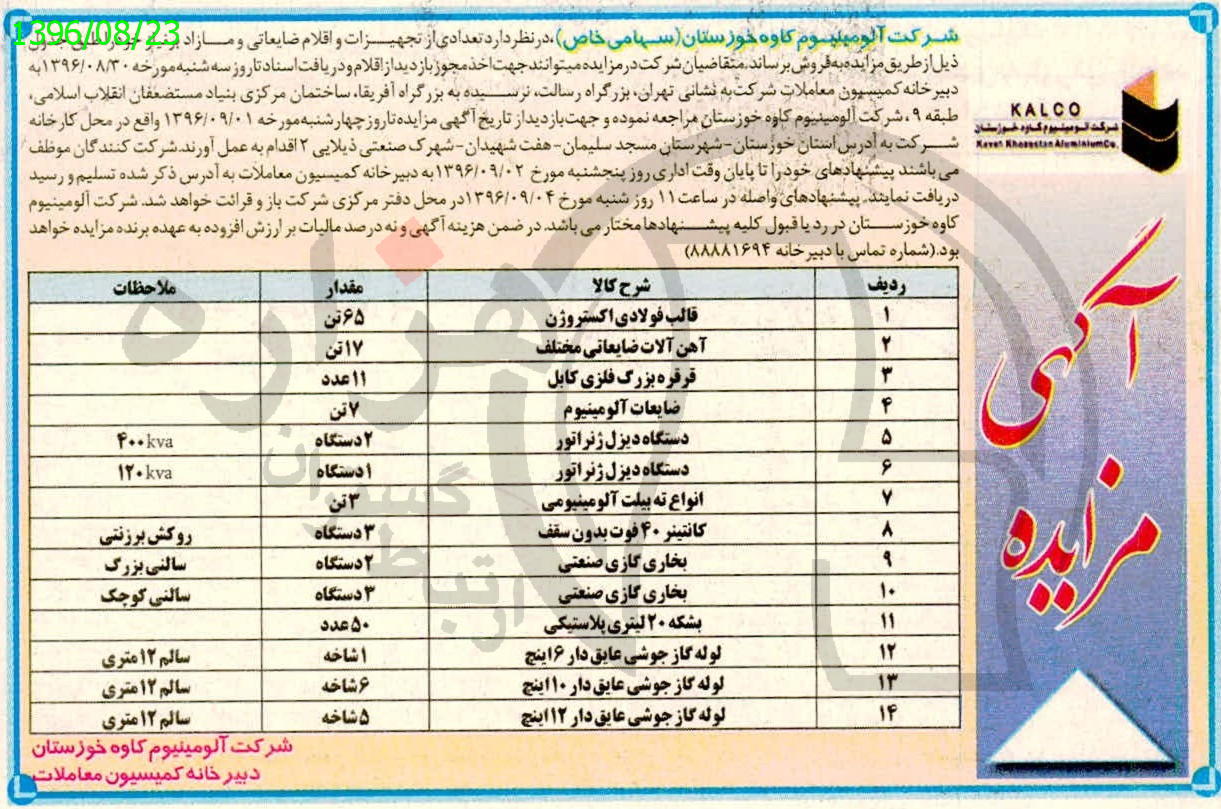 1396/08/23
شرکت آلومینیوم کاوه خوزستان (سهامی خاص)، در نظر دارد تعدادی از تجهیزات و اقلام ضایعاتی و مازاد
ذیل از طریق مزایده به فروش برساند. متقاضیان شرکت در مزایده میتوانند جهت اخذ مجوز بازدید از اقلام و دریافت اسناد تا روز سه شنبه مورخه ۱۳۹۶/۰۸/۳۰ به
دبیرخانه کمیسیون معاملات شرکت به نشانی تهران، بزرگراه رسالت، نرسیده به بزرگراه آفریقا، ساختمان مرکزی بنیاد مستضعفان انقلاب اسلامی،
طبقه ۹، شرکت آلومینیوم کاوه خوزستان مراجعه نموده و جهت بازدید از تاریخ آگهی مزایده تا روز چهارشنبه مورخه ۱۳۹۶/۰۹/۰۱ واقع در محل کارخانه
شرکت به آدرس استان خوزستان-شهرستان مسجد سلیمان-هفت شهیدان-شهرک صنعتی ذیلایی ۲ اقدام به عمل آورند. شرکت کنندگان موظف
می باشند پیشنهادهای خود را تا پایان وقت اداری روز پنجشنبه مورخ ۱۳۹۶/۰۹/۰۲ به دبیرخانه کمیسیون معاملات به آدرس ذکر شده تسلیم و رسید
دریافت نمایند. پیشنهادهای واصله در ساعت ۱۱ روز شنبه مورخ ۱۳۹۶/۰۹/۰۴ در محل دفتر مرکزی شرکت باز و قرائت خواهد شد. شرکت آلومینیوم
کاوه خوزستان در رد یا قبول کلیه پیشنهادها مختار می باشد. در ضمن هزینه آگهی و نه درصد مالیات بر ارزش افزوده به عهده برنده مزایده خواهد
بود. (شماره تماس با دبیرخانه ۸۸۸۸۱۶۹۴)
KALCO
شرکت آلومینیوم کاوه خوزستان
Kaveh Khozestan Aluminium Co.
آگهی
مزایده
ردیف شرح کالا مقدار ملاحظات
۱ قالب فولادی اکستروژن ۶۵ تن
۲ آهن آلات ضایعاتی مختلف ۱۷ تن
۳ قرقره بزرگ فلزی کابل ۱۱ عدد
۴ ضایعات آلومینیوم ۷ تن
۵ دستگاه دیزل ژنراتور ۲ دستگاه ۴۰۰ kva
۶ دستگاه دیزل ژنراتور ۱ دستگاه ۱۲۰ kva
۷ انواع ته بیلت آلومینیومی ۳ تن
۸ کانتینر ۴۰ فوت بدون سقف ۳ دستگاه روکش برزنتی
۹ بخاری گازی صنعتی ۲ دستگاه سالنی بزرگ
۱۰ بخاری گازی صنعتی ۳ دستگاه سالنی کوچک
۱۱ بشکه ۲۰ لیتری پلاستیکی ۵۰ عدد
۱۲ لوله گاز جوشی عایق دار ۶ اینچ ۱ شاخه سالم ۱۲ متری
۱۳ لوله گاز جوشی عایق دار ۱۰ اینچ ۶ شاخه سالم ۱۲ متری
۱۴ لوله گاز جوشی عایق دار ۱۲ اینچ ۵ شاخه سالم ۱۲ متری
شرکت آلومینیوم کاوه خوزستان
دبیر خانه کمیسیون معاملات
هزاره
گستران
ارتباط